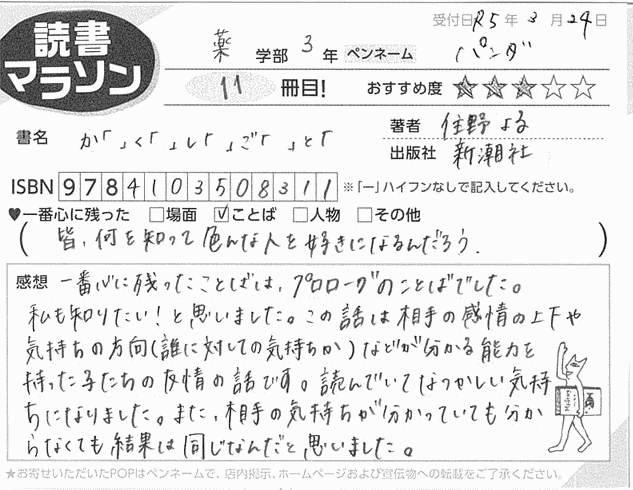 読書
マラソン
受付日R5年3月29日
薬学部3年 ペンネーム パンダ
11冊目! おすすめ度 ★★★☆☆
書名 か「」く「」し「」ご「」と「
著者 住野よる
出版社 新潮社
ISBN 9784103508311 ※「ー」ハイフンなしで記入してください。
♥一番心に残った □場面 ☑ことば □人物 □その他
(皆、何を知って色んな人を好きになるんだろう.)
感想 一番心に残ったことばは、プロローグのことばでした。
私も知りたい!と思いました。この話は相手の感情の上下や
気持ちの方向(誰に対しての気持ちか)などが分かる能力を
持った子たちの友情の話です。読んでいてなつかしい気持
ちになりました。また、相手の気持ちが分かっていても分か
らなくても結果は同じなんだと思いました。
★お寄せいただいたPOPはペンネームで、店内掲示、ホームページおよび宣伝物への転載をご了承ください。